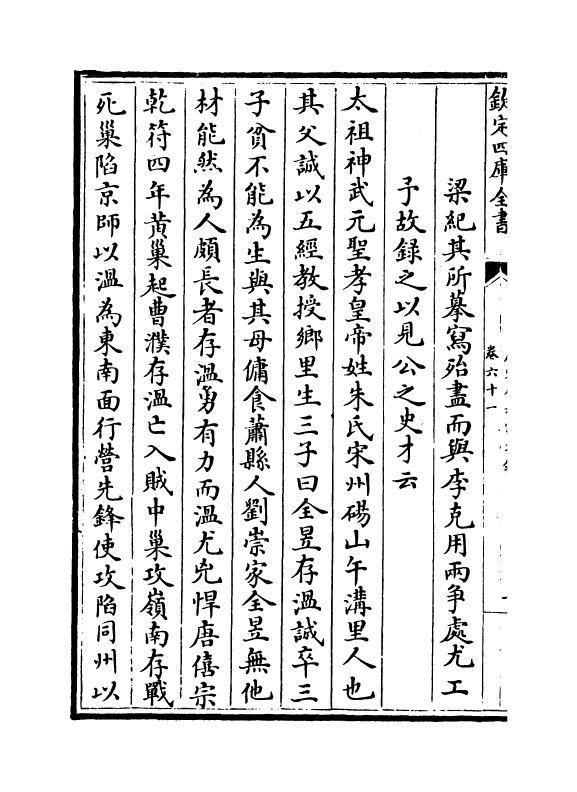 欽定四庫全書
卷六十一
梁紀其所摹寫殆盡而與李克用兩爭處尤工
予故錄之以見公之史才云
太祖神武元聖孝皇帝姓朱氏宋州碭山午溝里人也
其父誠以五經教授鄉里生三子曰全昱存溫誠卒三
子貧不能為生與其母傭食蕭縣人劉崇家全昱無他
材能然為人頗長者存溫勇有力而溫尤兇悍唐僖宗
乾符四年黃巢起曹濮存溫亡入賊中巢攻嶺南存戰
死巢陷京師以溫為東南面行營先鋒使攻陷同州以